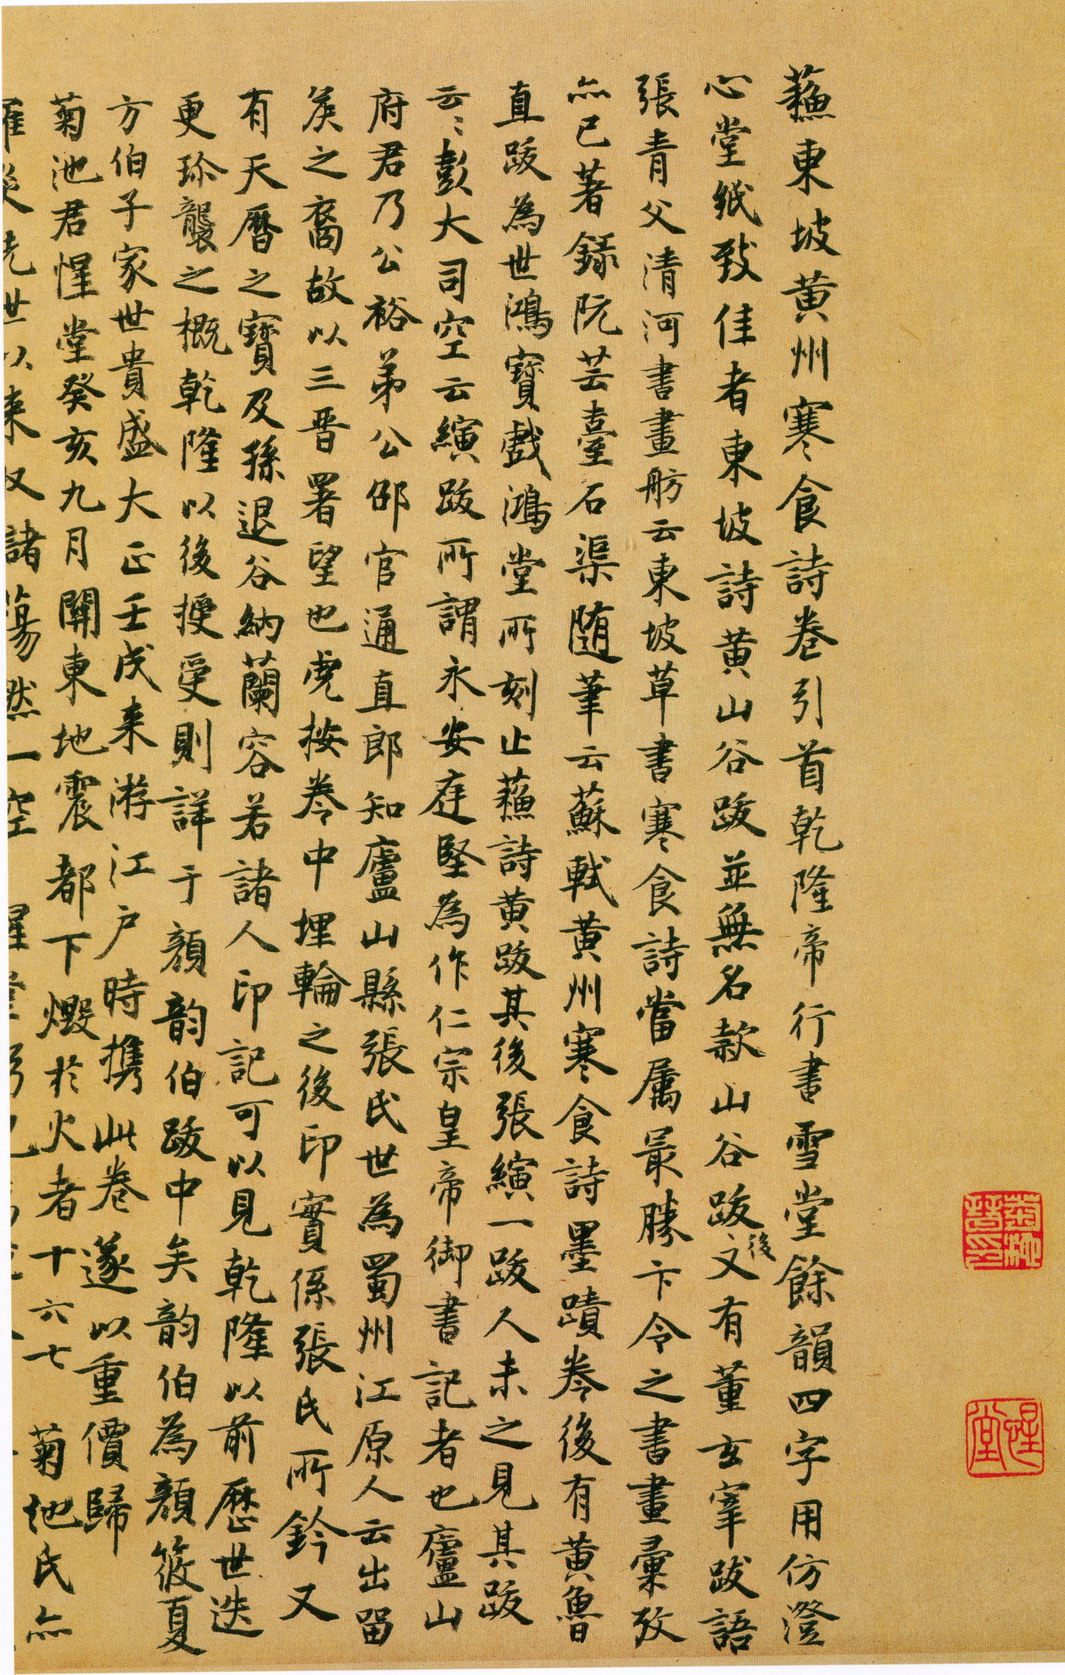 蘓東坡黄州寒食詩卷引首乾隆帝行書雪堂餘韻四字用仿澄
心堂紙致佳者東坡詩黄山谷跋並無名款山谷跋後又有董玄宰跋語
張青父清河書畫舫云東坡草書寒食詩當属㝡勝卞令之書畫彙攷
亦已著録阮芸臺石渠随筆云蘇軾黄州寒食詩墨蹟卷後有黄魯
直跋為世鴻寶戲鴻堂所刻止蘓詩黄跋其後張縯一跋人未之見其跋
云云彭大司空云縯跋所謂永安庭堅為作仁宗皇帝御書記者也廬山
府君乃公裕弟公邵官通直郎知廬山縣張氏世為蜀州江原人云出留
矦之裔故以三晋署望也虎按卷中埋輪之後印實係張氏所鈐又
有天暦之寶及孫退谷納蘭容若諸人印記可以見乾隆以前歴世迭
更珎襲之概乾隆以後授受則詳于顔韵伯跋中矣韵伯為顔筱夏
方伯子家世貴盛大正壬戌来游江户時携此卷遂以重價歸
菊池君惺堂癸亥九月關東地震都下燬於火者十六七菊池氏亦
先世以来収諸蕩然一空
菊池晉印
惺堂